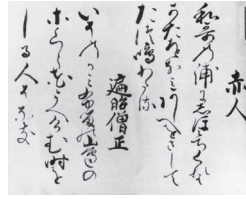 赤人
和哥の浦にしほみちくれは
かたをなみあしへをさして
たつ鳴わたる
遍昭僧正
いそのかみ布留の山邊の
さくら花うへけむ時を
しる人そなき